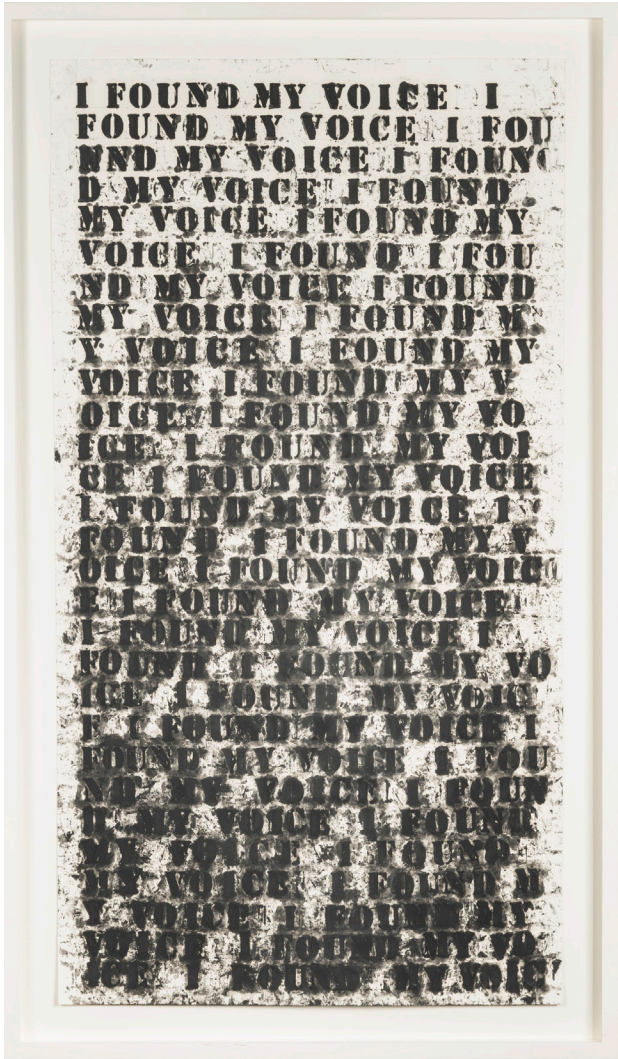 I FOUND MY VOICE I
FOUND MY VOICE I FOU
NND MY VOICE I FOUNC
D MY VOICE I FOUND
MY VOICE I FOUND MY
VOICE I FOUND I FOU
ND MY VOICE I FOUND
MY VOICE I FOUND M
Y VOICE I FOUND MY
VOICE I FOUND MY V
OICE I FOUND MY VO
ICE I FOUND MY VOI
CE I FOUND MY VOICE
I FOUND MY VOICE I
FOUND I FOUND MY V
OICE I FOUND MY VOIC
E I FOUND MY VOICE
I FOUND MY VOICE I
FOUND I FOUND MY VO
ICE I FOUND MY VOIC
E I FOUND MY VOICE I
FOUND MY VOICE I FOU
ND MY VOICE I FOUN
D MY VOICE I FOUND
MY VOICE I FOUND
MY VOICE I FOUND M
Y VOICE I FOUND MY
VOICE I FOUND MY VO
ICE I FOUND MY VOIC